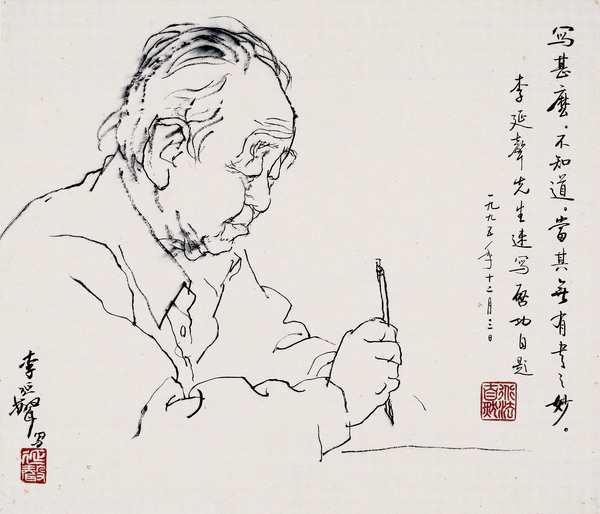 寫甚麼。不知道。當其無有書之妙。
李延聲先生速寫啟功自題
一九九五年十二月三日
李延聲寫
延聲